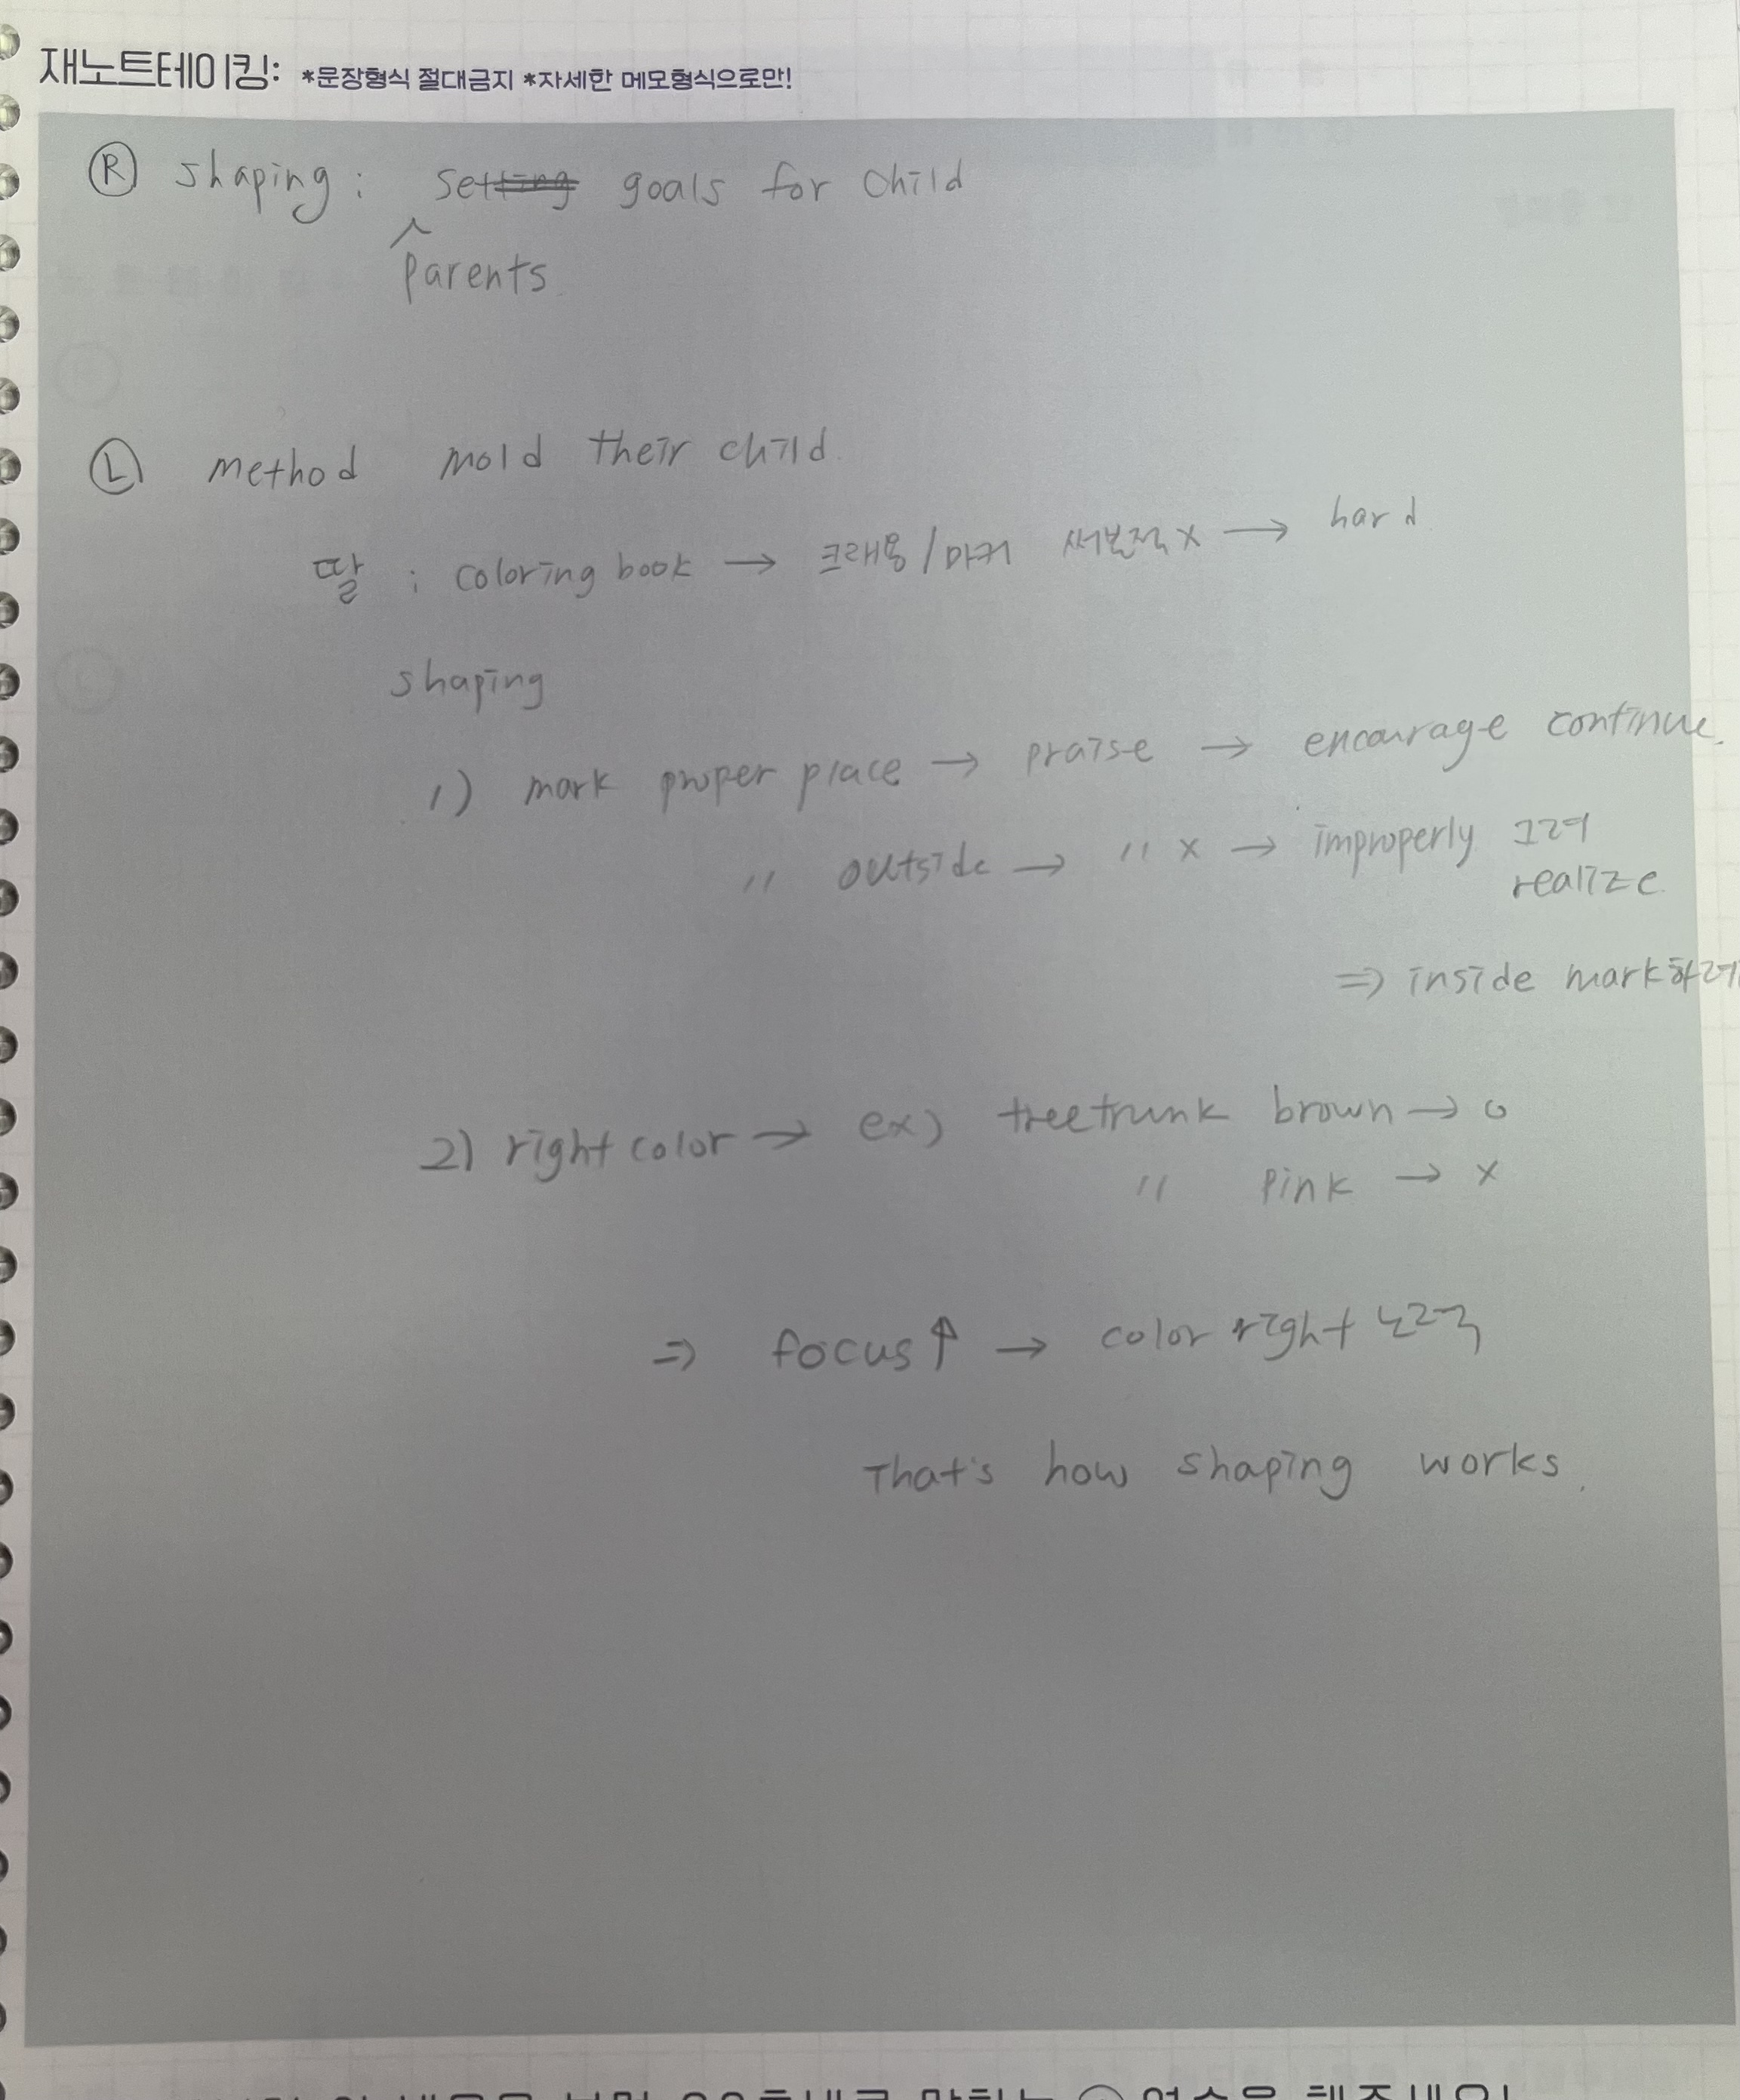 재노트테이킹: *문장형식 절대금지 *자세한 메모형식으로만!
Ⓡ shaping : setting goals for child
parents
Ⓛ method mold their child.
딸 : coloring book → 크레용/마커 써본적 x → hard
shaping
1) mark proper place → praise → encourage continue.
〃 outside → 〃 x → improperly 그려
realize
⇒ inside mark하려
2) right color → ex) tree trunk brown → o
〃 pink → x
⇒ focus↑ → color right 노력
That's how shaping works.